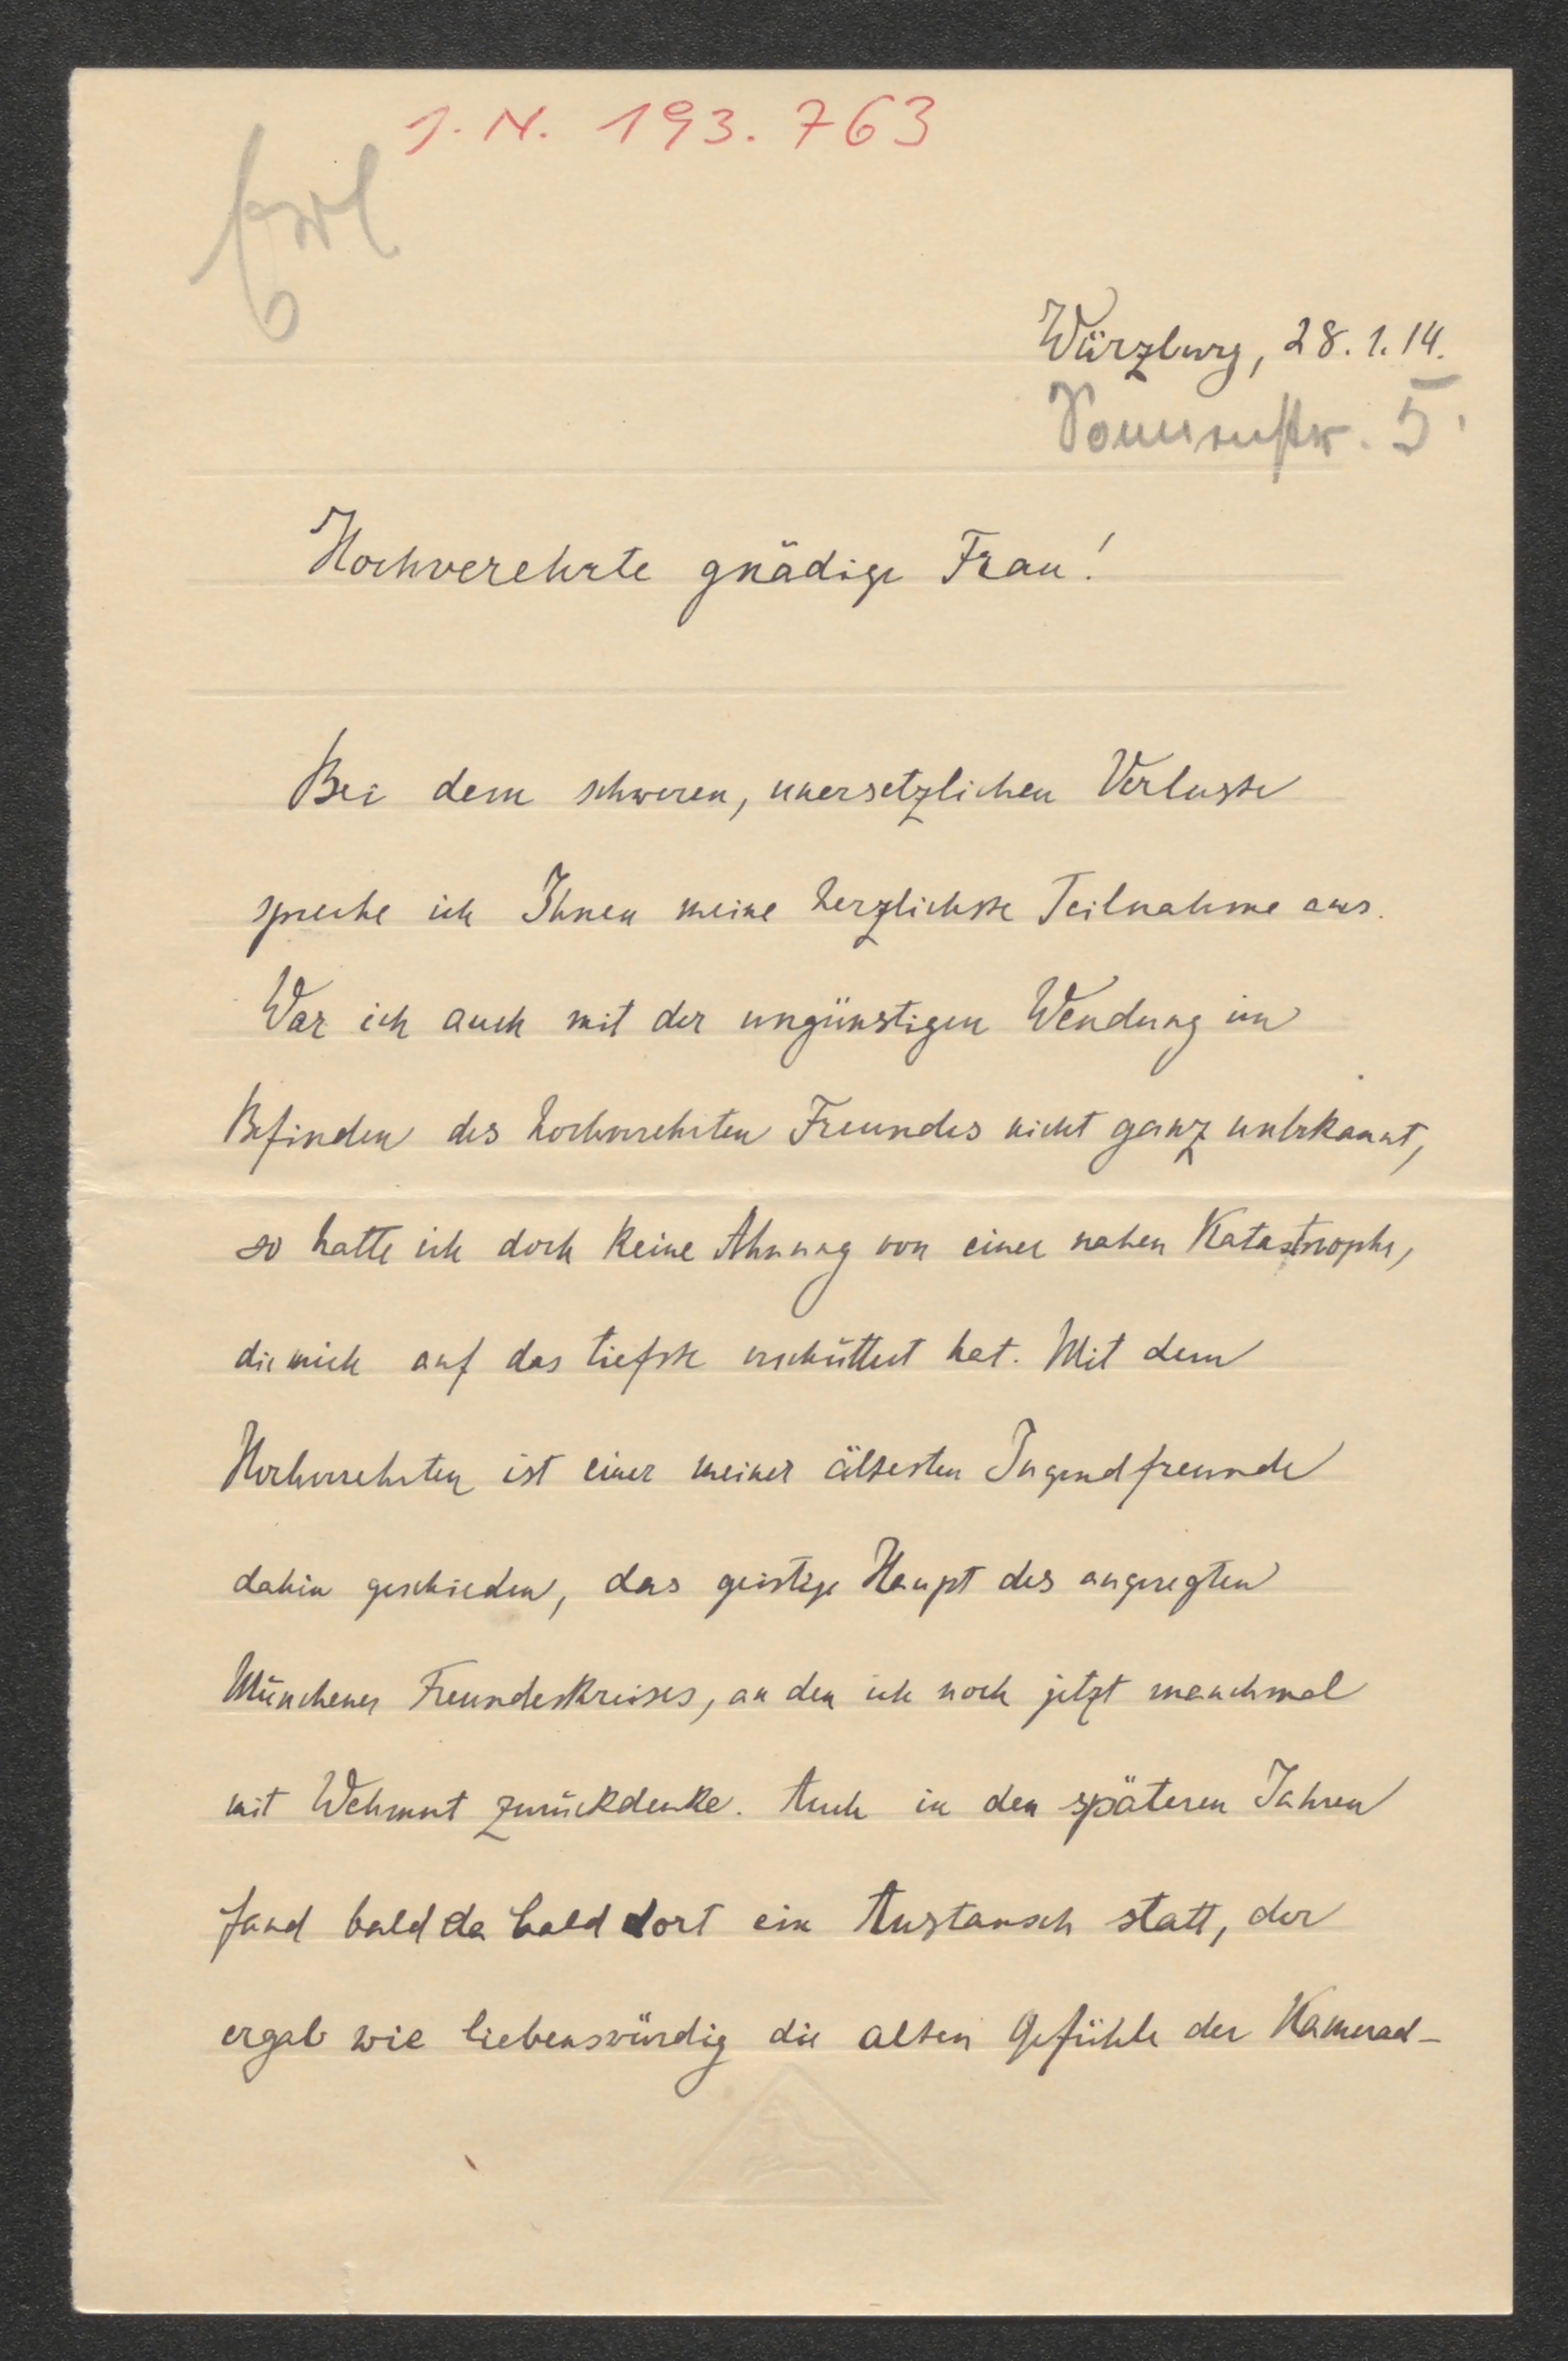 J. N. 193.763
Würzburg, 28.1.14.
5.
Hochverehrte gnädige Frau!
Bei dem schweren, unersetzlichen Verluste
spreche ich Ihnen meine herzlichste Teilnahme aus.
War ich auch mit der ungünstigen Wendung im
Befinden des hochverehrten Freundes nicht ganz unbekannt,
so hatte ich doch keine Ahnung von einer nahen Katastrophe,
die mich auf das tiefste erschüttert hat. Mit dem
Hochverehrten ist einer meiner ältesten Jugendfreunde
dahin geschieden, das geistige Haupt des angeregten
Münchener Freundeskreises, an den ich noch jetzt manchmal
mit Wehmut zurückdenke. Auch in den späteren Jahren
fand bald da bald dort ein Austausch statt, der
ergab wie liebenswürdig die alten Gefühle der Kamerad-